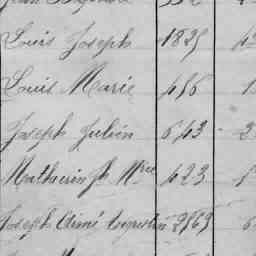 Louis Joseph 1825
Louis Marie 456
Joseph Julien 643 2
Mathurin Jh Mrie 423
Joseph Aimé 2969 6